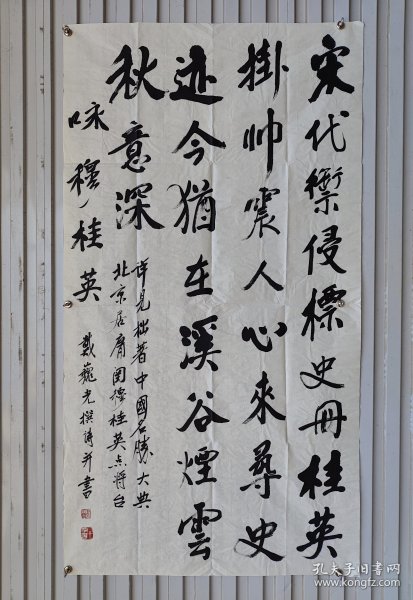 宋代禦侵標史冊桂英
掛帥震人心來尋史
迹今猶在溪谷煙雲
秋意深
詳見拙著中國名勝大典
北京居庸関穆桂英点将台
咏穆桂英
戴巍光撰詩并書
孔夫子旧书网
www.kongfz.com